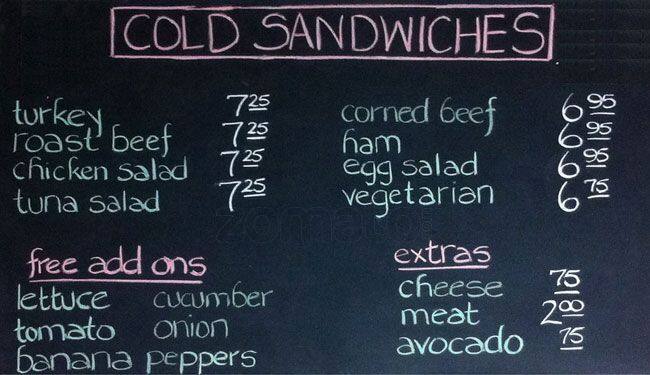 COLD SANDWICHES
turkey 7 25
roast beef 7 25
chicken salad 7 25
tuna salad 7 25
corned beef 6 95
ham 6 95
egg salad 6 95
vegetarian 6 75
free add ons
lettuce cucumber
tomato onion
banana peppers
extras
cheese 75
meat 2 00
avocado 75